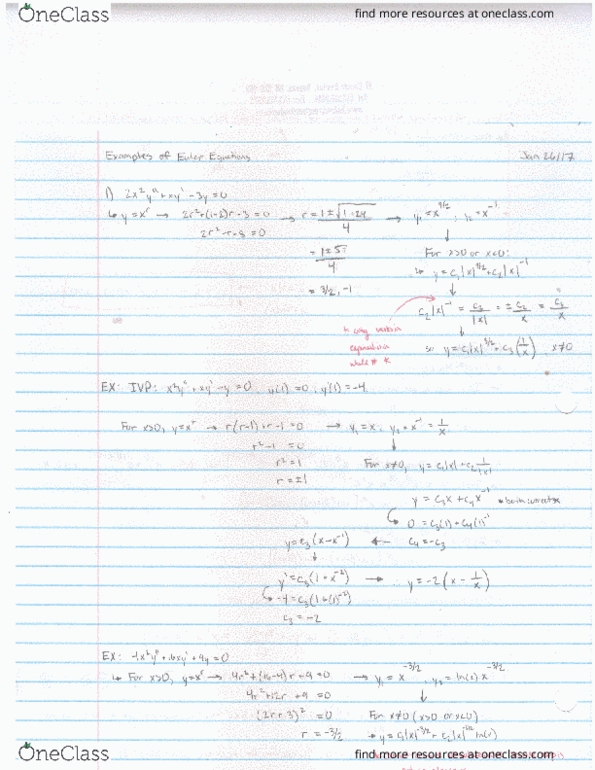 OneClass
find more resources at oneclass.com
Examples of Euler Equations
Jan 26/17
1) 2x²y'' + xy' - 3y = 0
↳ y = x^r → 2r² + (1-2)r - 3 = 0 → r = → y₁ = x^3/2 ; y₂ = x^-1
2r² - r - 3 = 0
= 1±5 / 4
For x>0 or x<0:
↳ y = c₁|x|^3/2 + c₂|x|^-1
= 3/2, -1
c₂|x|^-1 = c₂/|x| = ±c₂/x = c₃/x
so y = c₁|x|^3/2 + c₃(1/x) x≠0
EX: IVP: x²y'' + xy' - y = 0, y(1) = 0, y'(1) = -4
For x>0, y = x^r → r(r-1) + r - 1 = 0 → y₁ = x, y₂ = x^-1 = 1/x
r² - 1 = 0
r² = 1
For x≠0, y = c₁|x| + c₂ 1/|x|
r = ±1
y = c₃x + c₄x^-1 • both correct
0 = c₃(1) + c₄(1)^-1
y = c₃(x - x^-1) ← c₄ = -c₃
y' = c₃(1 + x^-2) → y = -2(x - 1/x)
-4 = c₃(1 + (1)^-2)
c₃ = -2
EX: 4x²y'' + 16xy' + 9y = 0
↳ For x>0, y = x^r → 4r² + (16-4)r + 9 = 0 → y₁ = x^-3/2, y₂ = ln(x) x^-3/2
4r² + 12r + 9 = 0
(2r + 3)² = 0
For x≠0 (x>0 or x<0)
r = -3/2
↳ y = c₁|x|^-3/2 + c₂|x|^-3/2 ln(x)
OneClass
find more resources at oneclass.com